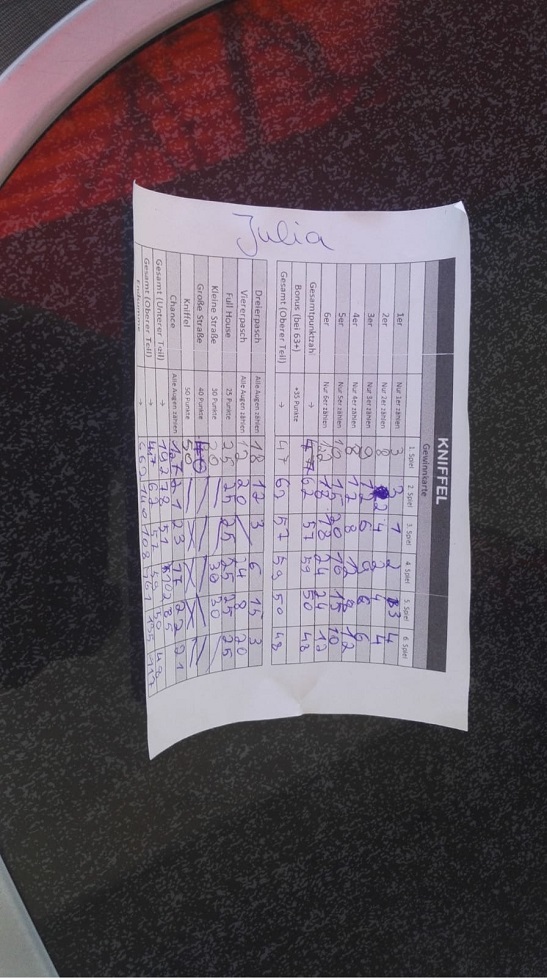 Julia
KNIFFEL
Gewinnkarte
1. Spiel 2. Spiel 3. Spiel 4. Spiel 5. Spiel 6. Spiel
1er Nur 1er zählen 3 3 1 2 3 4
2er Nur 2er zählen 8 2 4 2 4 4
3er Nur 3er zählen 9 12 6 9 6 6
4er Nur 4er zählen 8 12 8 12 8 12
5er Nur 5er zählen 10 15 20 10 15 10
6er Nur 6er zählen 12 18 18 24 24 12
Gesamtpunktzahl → 47 62 57 59 50 48
Bonus (bei 63+) +35 Punkte
Gesamt (Oberer Teil) → 47 62 57 59 50 48
Dreierpasch Alle Augen zählen 18 12 3 6 15 3
Viererpasch Alle Augen zählen 12 20 14 8 20
Full House 25 Punkte 25 25 25 25 25 25
Kleine Straße 30 Punkte 30 30
Große Straße 40 Punkte 40
Kniffel 50 Punkte 50
Chance Alle Augen zählen 17 21 23 17 22 21
Gesamt (Unterer Teil) → 192 78 51
Gesamt (Oberer Teil) → 47 62 57 59 50 48